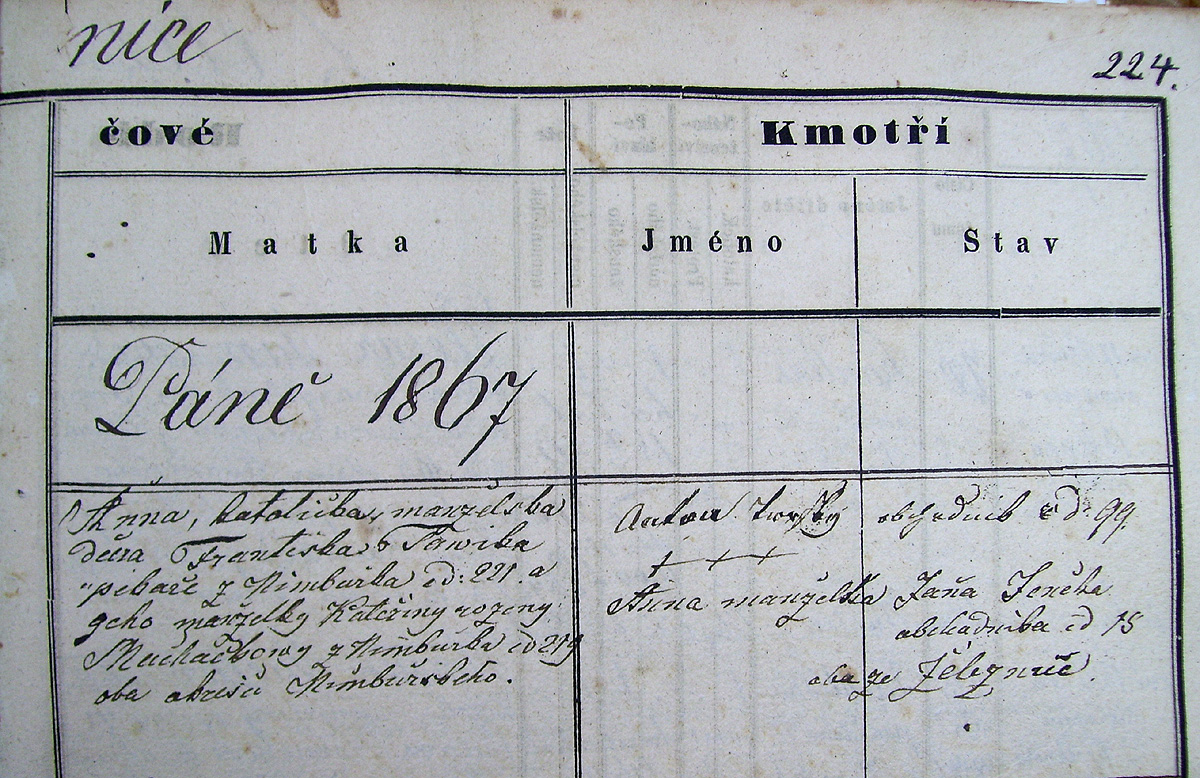 nice
224.
čové
Kmotří
Matka
Jméno
Stav
Páně 1867
Anna, katolička, manželska
dcera Františka Nowika
pekaře z Nimburka čd: 221. a
geho manželky Kateřiny rozeny
z Nimburka čd 219
oba okresu Nimburského.
Anton
obchodník čd. 99
+ + +
Anna manželka Jaňa
obchodnika čd 18
oba ze Železnice.